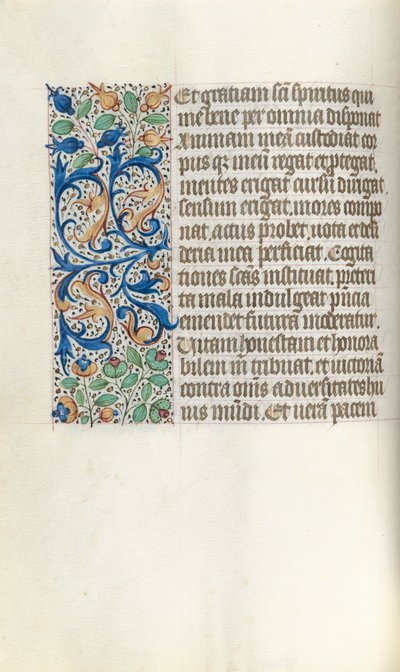 Et gratiam sci spiritus qui
me bene per omnia disponat
animam meā custodiat cor
pus qz meū regat et protegat.
mentes erigat cursū dirigat.
sensum erigat. mores compo
nat. actus probet. uota et desi
deria mea perficiat. Cogita
tiones scās instituat. preteri
ta mala indulgeat. pn̄cia
emendet. futura moderatur.
Uitam honestam et honora
bilem m tribuat. et uictoriā
contra om̄s aduersitates hu
ius mūdi. Et uerā pacem